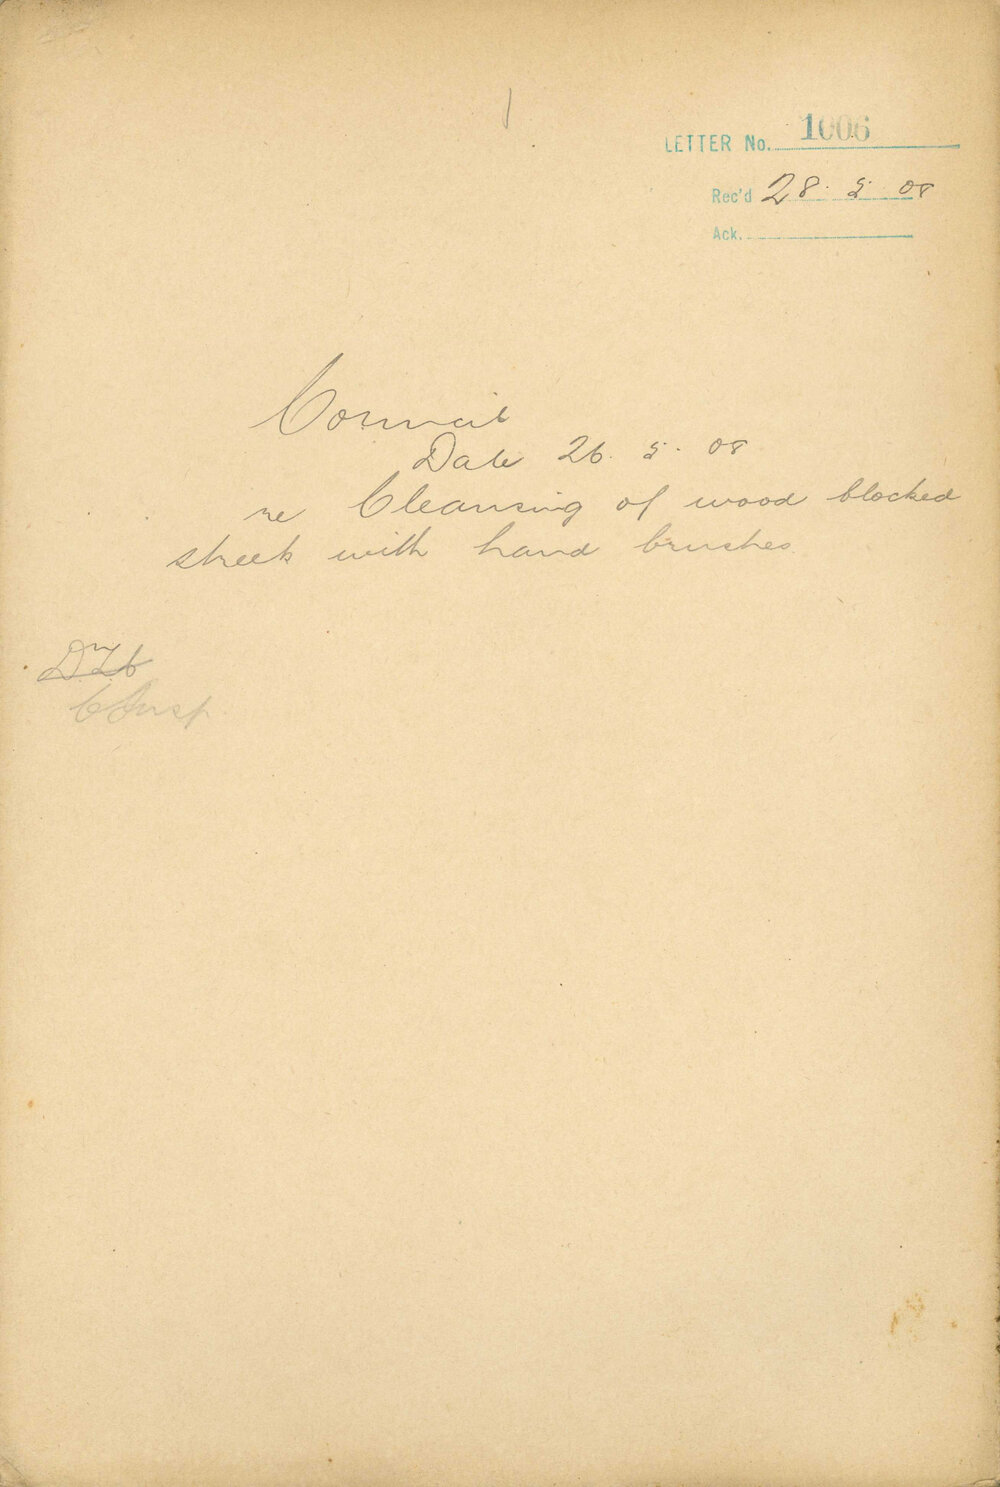 LETTER No. 1006
Rec'd 28. 5. 08
Ack.
Council
Date 26. 5. 08
re Cleansing of wood blocked
streets with hand brushes.